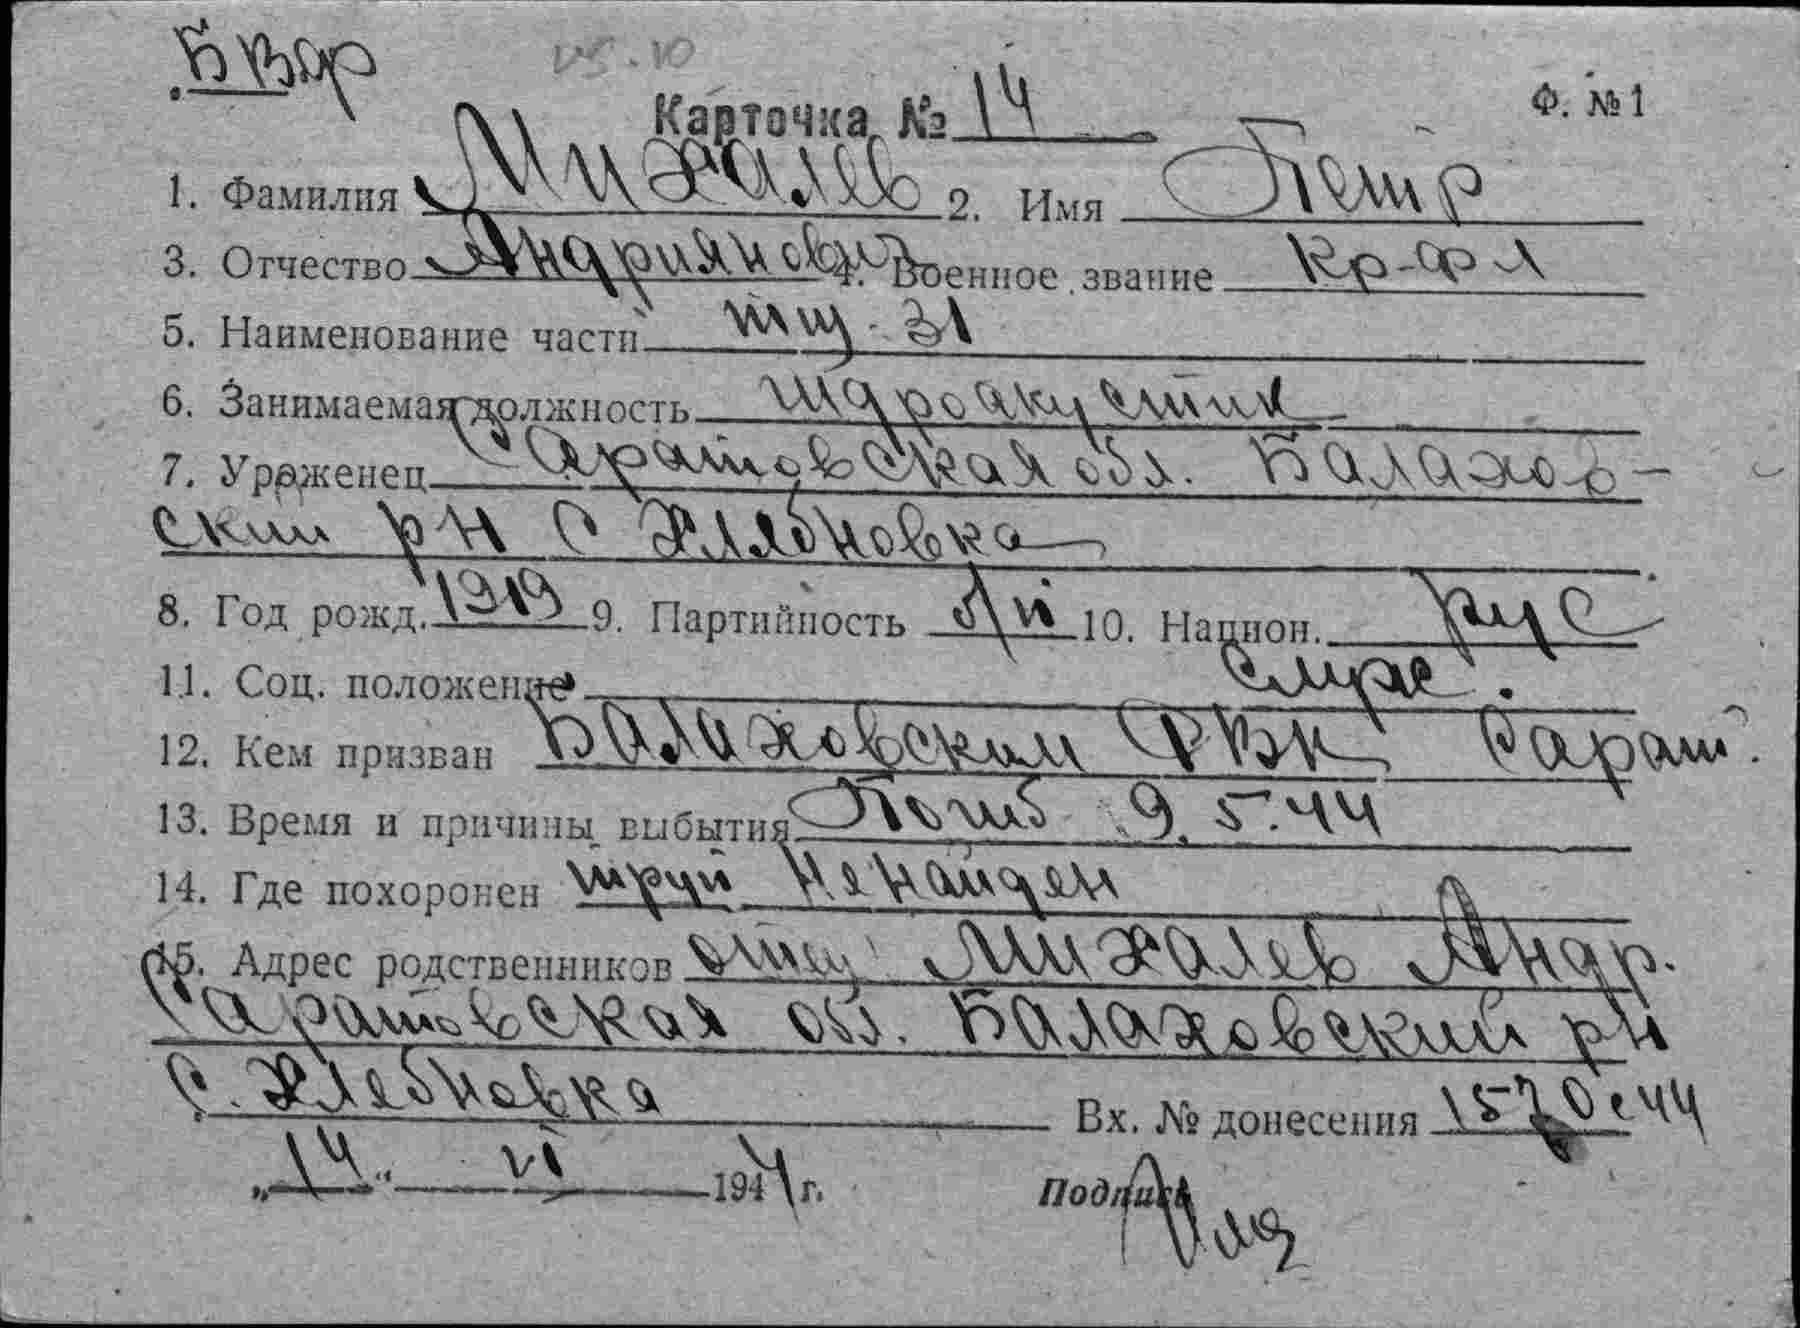 Бвар
05.10
Карточка № 14
Ф. №1
1. Фамилия Михалев 2. Имя Петр
3. Отчество Андриянович 4. Военное звание кр-фл
5. Наименование части тщ-31
6. Занимаемая должность гидроакустик
7. Уроженец Саратовская обл. Балахов-
ский рн с Хлебновка
8. Год рожд. 1919 9. Партийность б/п 10. Национ. рус
11. Соц. положение служ.
12. Кем призван Балаховским РВК Сарат.
13. Время и причины выбытия Погиб 9.5.44
14. Где похоронен труп не найден
15. Адрес родственников отец Михалев Андр.
Саратовская обл. Балаховский рн
с. Хлебновка
Вх. № донесения 1570с 44
„14“ VI 1944 г. Подпись